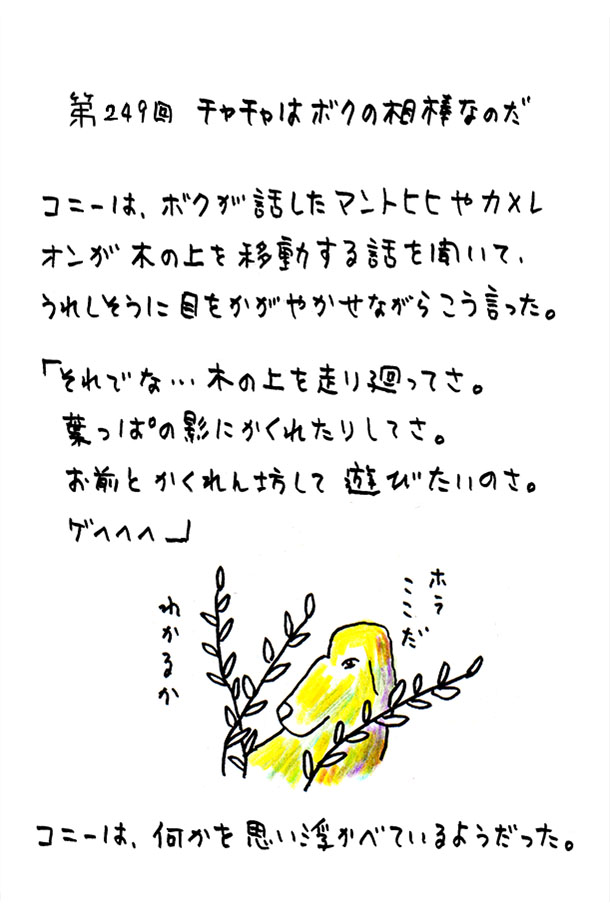 第249回 チャチャはボクの相棒なのだ
コニーは、ボクが話したマントヒヒやカメレ
オンが木の上を移動する話を聞いて、
うれしそうに目をかがやかせながらこう言った。
「それでな…木の上を走り廻ってさ。
葉っぱの影にかくれたりしてさ。
お前とかくれん坊して遊びたいのさ。
ゲヘヘヘ」
ホラ
ここだ
わかるか
コニーは、何かを思い浮かべているようだった。